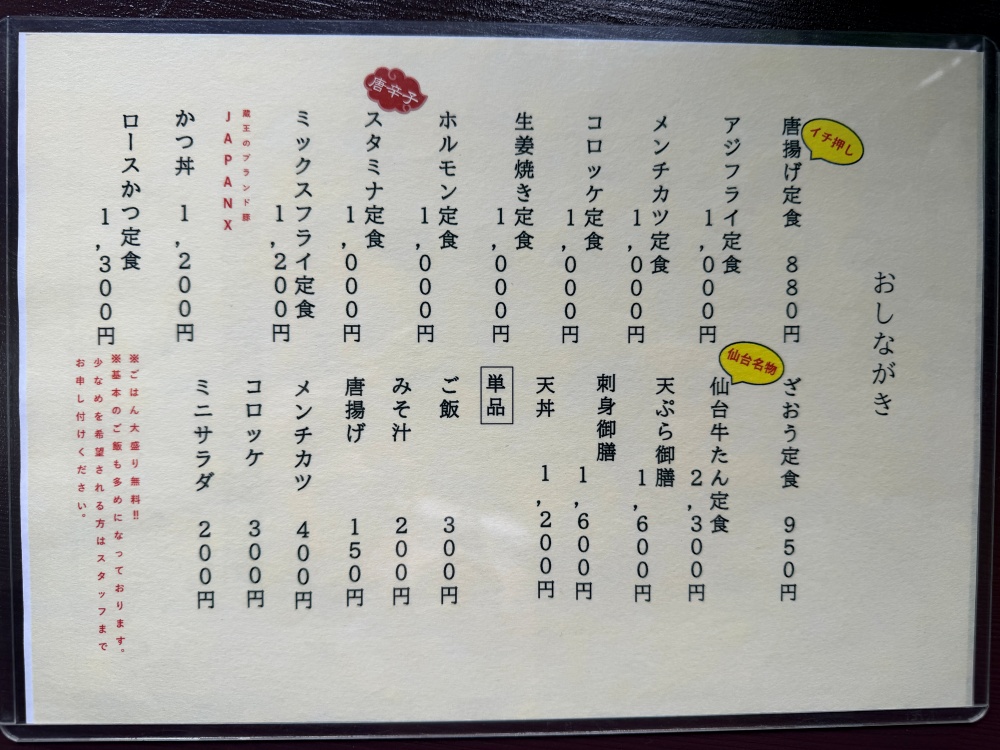 おしながき
イチ押し
唐揚げ定食 880円
アジフライ定食
1,000円
メンチカツ定食
1,000円
コロッケ定食
1,000円
生姜焼き定食
1,000円
ホルモン定食
1,000円
唐辛子
スタミナ定食
1,000円
ミックスフライ定食
1,200円
蔵王のブランド豚
JAPANX
かつ丼 1,200円
ロースかつ定食
1,300円
ざおう定食 950円
仙台名物
仙台牛たん定食
2,300円
天ぷら御膳
1,600円
刺身御膳
1,600円
天丼 1,200円
単品
ご飯 300円
みそ汁 200円
唐揚げ 150円
メンチカツ 400円
コロッケ 300円
ミニサラダ 200円
※ごはん大盛り無料!!
※基本のご飯も多めになっております。
少なめを希望される方はスタッフまで
お申し付けください。